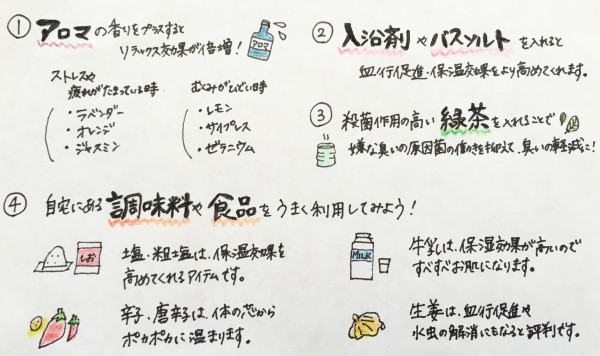 ① アロマの香りをプラスすると
リラックス効果が倍増！
アロマ
ストレスや
疲れがたまっている時
・ラベンダー
・オレンジ
・ジャスミン
むくみがひどい時
・レモン
・サイプレス
・ゼラニウム
② 入浴剤やバスソルトを入れると
血行促進・保温効果をより高めてくれます。
③ 殺菌作用の高い緑茶を入れることで
嫌な臭いの原因菌の働きを抑えて、臭いの軽減に！
④ 自宅にある調味料や食品をうまく利用してみよう！
しお
土塩・粗塩は、保温効果を
高めてくれるアイテムです。
MILK
牛乳は、保湿効果が高いので
すべすべお肌になります。
辛子・唐辛子は、体の芯から
ポカポカに温まります。
生姜は、血行促進や
水虫の解消にもなると評判です。